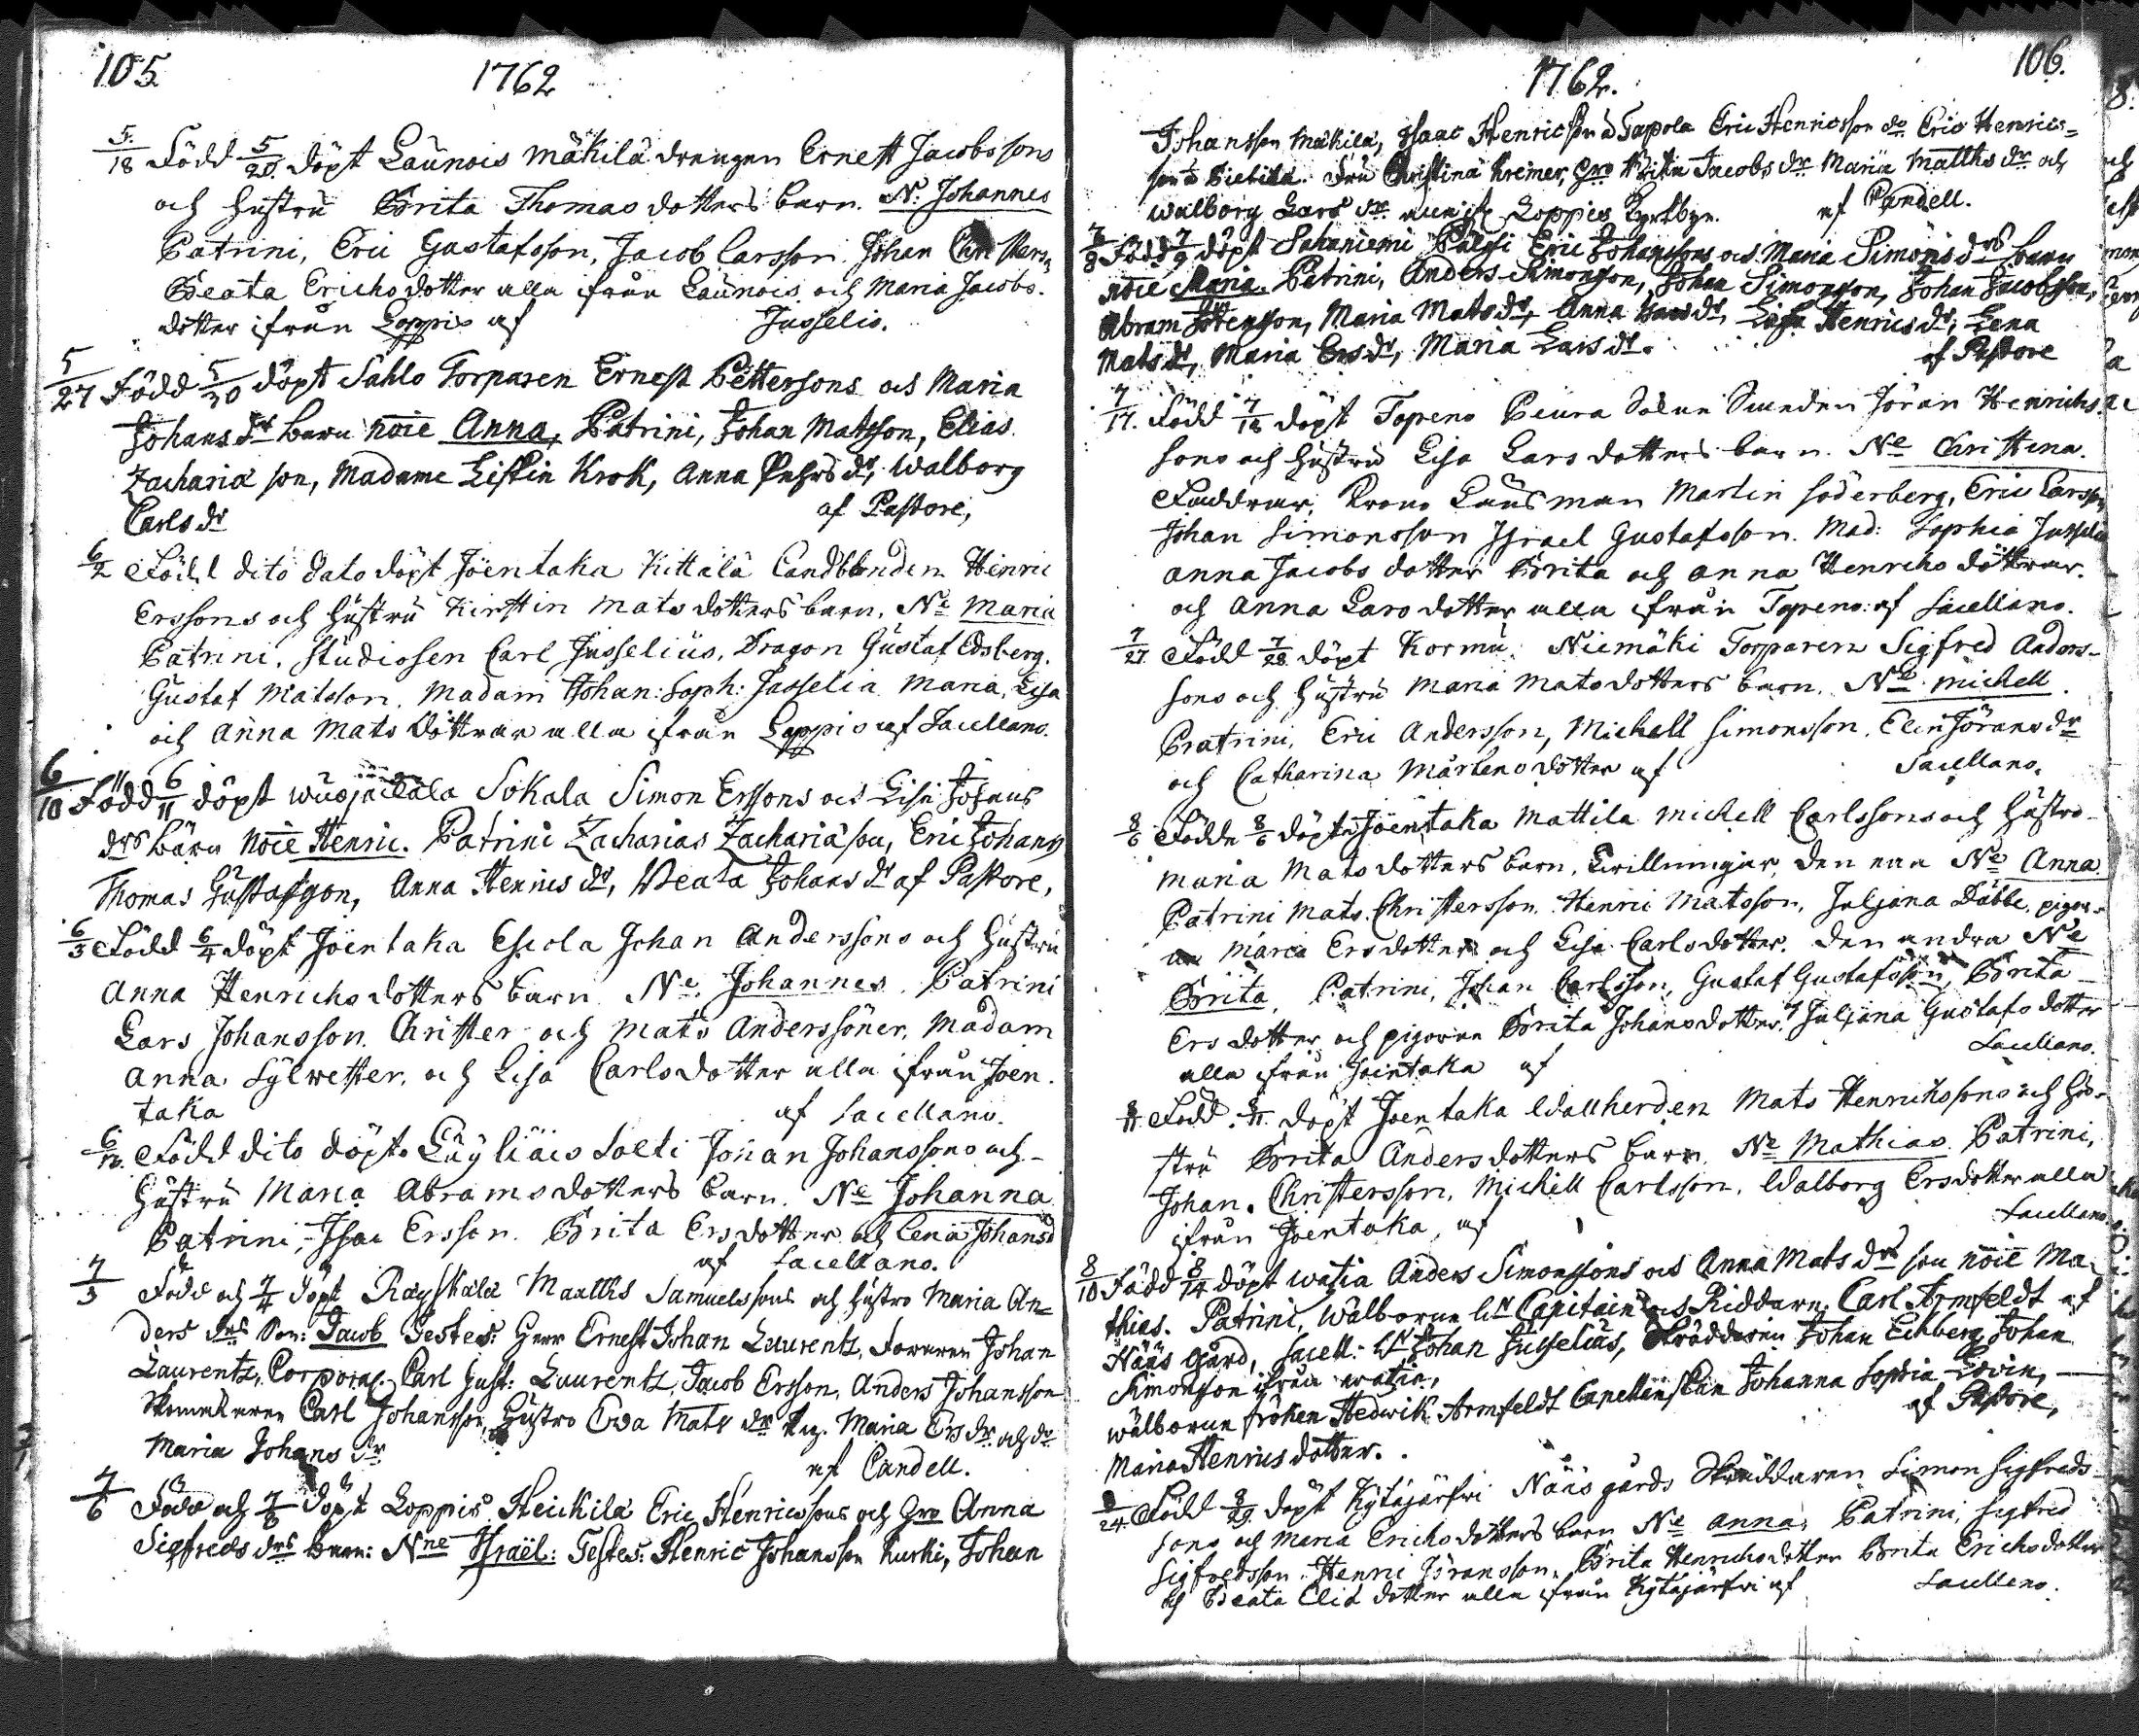 105.
1762
5/18 Född 5/20 döpt Launois Mäkilä drengen Ernest Jacobssons
och hustru Brita Thomas dotters barn. N: Johannes
Patrini, Eric Gustafsson, Jacob Larsson. Johan Christerss
Beata Erichs dotter alla ifrån Launois och Maria Jacobs-
dotter ifrån Loppis af Jusselio.
5/27 Född 5/30 döpt Sahlo Torparen Ernest Pettersons ocs Maria
Johans dr barn noïe Anna, Patrini, Johan Matsson, Elias
Zachariæ son, Madame Liskin Krok, Anna Pehrs dr, Walborg
Carls dr af Pastore,
6/2 Född dito dato döpt Joentaka Kittälä Landbonden Hinric
Erssons och hustru Kirstin Mats dotters barn. Ne Maria
Patrini, Studiosen Carl Jusselius, Dragon Gustaf Edsberg.
Gustaf Matsson. Madam Johan: Soph: Jusselia Maria, Lisa
och Anna Mats döttrar alla ifrån Loppis af Sacellano.
6/10 Född 6/11 döpt Sokala Simon Erssons ocs Lisa Johans
drs barn noïe Henric. Patrini Zacharias Zachariæ son, Eric Johans
Thomas Gustafsson, Anna Henrics dr, Beata Johans dr af Pastore,
6/3 Född 6/4 döpt Joentaka Escola Johan Anderssons och hustru
Anna Henrichs dotters barn Ne. Johannes. Patrini
Lars Johansson. Christer och Mats Anderssöner. Madam
Anna Sylwester, och Lisa Carls dotter alla ifrån Joen-
taka af Sacellano.
6/12. Född dito döpt Läyliäis Solti Johan Johanssons och
hustru Maria Abrams dotters barn. Ne Johanna
Patrini, Isac Ersson. Brita Ers dotter och Lena Johansd
af Sacellano.
7/3 Född och 7/4 döpt Räyskälä Matths Samuelssons och hustro Maria An=
ders drs Son: Jacob Testes: Herr Ernest Johan Laurentz, Foraren Johan
Laurentz, Corporal. Carl Gust: Laurentz, Jacob Ersson, Anders Johansson
Skomakaren Carl Johansson, Hustro Ewa Mats dr Pig. Maria Ers dr och do
Maria Johans dr. af Candell.
7/6 Född och 7/8 döpt Loppis Heickilä Eric Henricssons och Hro Anna
Sigfreds drs Barn: Nne Israël: Testes: Henric Johansson Kurki, Johan
106.
1762.
Johansson Mäkilä, Isaac Henricsson å Tapola Eric Henricsson do Eric Henrics=
son å Pietilä. Fru Christina Kremer, Hro Brita Jacobs dr Maria Matths dr och
Walborg Lars dr Loppis Kyrkbyn. af Candell.
7/8 Född 7/9 döpt Sahaniemi Pälsi Eric Johanssons ocs Maria Simons drs barn
noïe Maria. Patrini, Anders Simonson, Johan Simonson, Johan Jacobsson,
Abram Jörensson, Maria Mats dr, Anna Hans dr, Lisa Henrics dr, Lena
Mats dr, Maria Ers dr, Maria Lars dr. af Pastore
7/17. Född 7/18 döpt Topeno Peura Jöran Henrichs
sons och hustru Lisa Lars dotters barn. Ne Christina.
Faddrar, Krono Länsman Martin Söderberg, Eric Larsson
Johan Simonsson Israel Gustafsson. Mad: Sophia Jusselia
Anna Jacobs dotter Brita och Anna Henrichs döttrar.
och Anna Lars dotter alla ifrån Topeno af Sacellano.
7/27. Född 7/28 döpt Kormu. Niemäki Torparen Sigfred Anders-
sons och hustru Maria Mats dotters barn. Ne Michell.
Patrini, Eric Andersson, Michell Simonsson. Elin Jörans dr
och Catharina Mårtens dotter af Sacellano.
8/6 Födde 8/6 döpte Joentaka Mattila Michell Carlssons och hustro
Maria Mats dotters barn, Twillningar, den ena Ne Anna
Patrini Mats Christersson. Henric Matsson, Juljana Däbbe, pigor-
na Maria Ers dotter och Lisa Carls dotter. den andra Ne
Brita, Patrini, Johan Carlsson, Gustaf Gustafsson, Brita
Ers dotter och pigorna Brita Johans dotter, Juljana Gustafs dotter
alla ifrån Joentaka af Sacellano.
8/11 Född 8/11 döpt Joentaka Wallherden Mats Henrichssons och Hu-
stru Brita Anders dotters barn. Ne Mathias. Patrini,
Johan. Christersson, Michill Carlsson. Walborg Ers dotter alla
ifrån Joentaka, af Sacellano.
8/10 Född 8/14 döpt Watia Anders Simonssons ocs Anna Mats drs son noïe Ma-
thias. Patrini, Wälborne hr Capitain ocs Riddaren Carl Armfeldt af
Nääs Gård, Sacell: hr Johan Jusselius, Skräddaren Johan Eckberg Johan
Simonson ifrån Watia,
Wälborne fröken Hedwik Armfeldt Johanna Sophia
Maria Henrics dotter. af Pastore,
8/24. Född 8/29. döpt Kytäjärfwi Nääs gårds Skräddaren Simon Sigfreds
sons och Maria Erichs dotters barn Ne Anna, Patrini, Sigfred
Sigfredsson. Henric Jöransson. Brita Henrichs dotter Brita Erichs dotter
och Beata Elis dotter alla ifrån Kytäjärfwi af Sacellano.